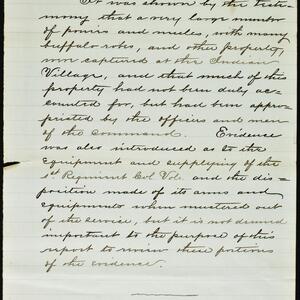 It was shown by the testi-
mony that a very large number
of ponies and mules, with many
buffalo robes, and other property,
were captured at the Indian
Village, and that much of this
property had not been duly ac-
counted for, but had been appro-
priated by the officers and men
of the command. Evidence
was also introduced as to the
equipment and supplying of the
1st Regiment Col Vol. and the dis-
position made of its arms and
equipments when mustered out
of the service, but it is not deemed
important to the purpose of this
report to review these portions
of the evidence.